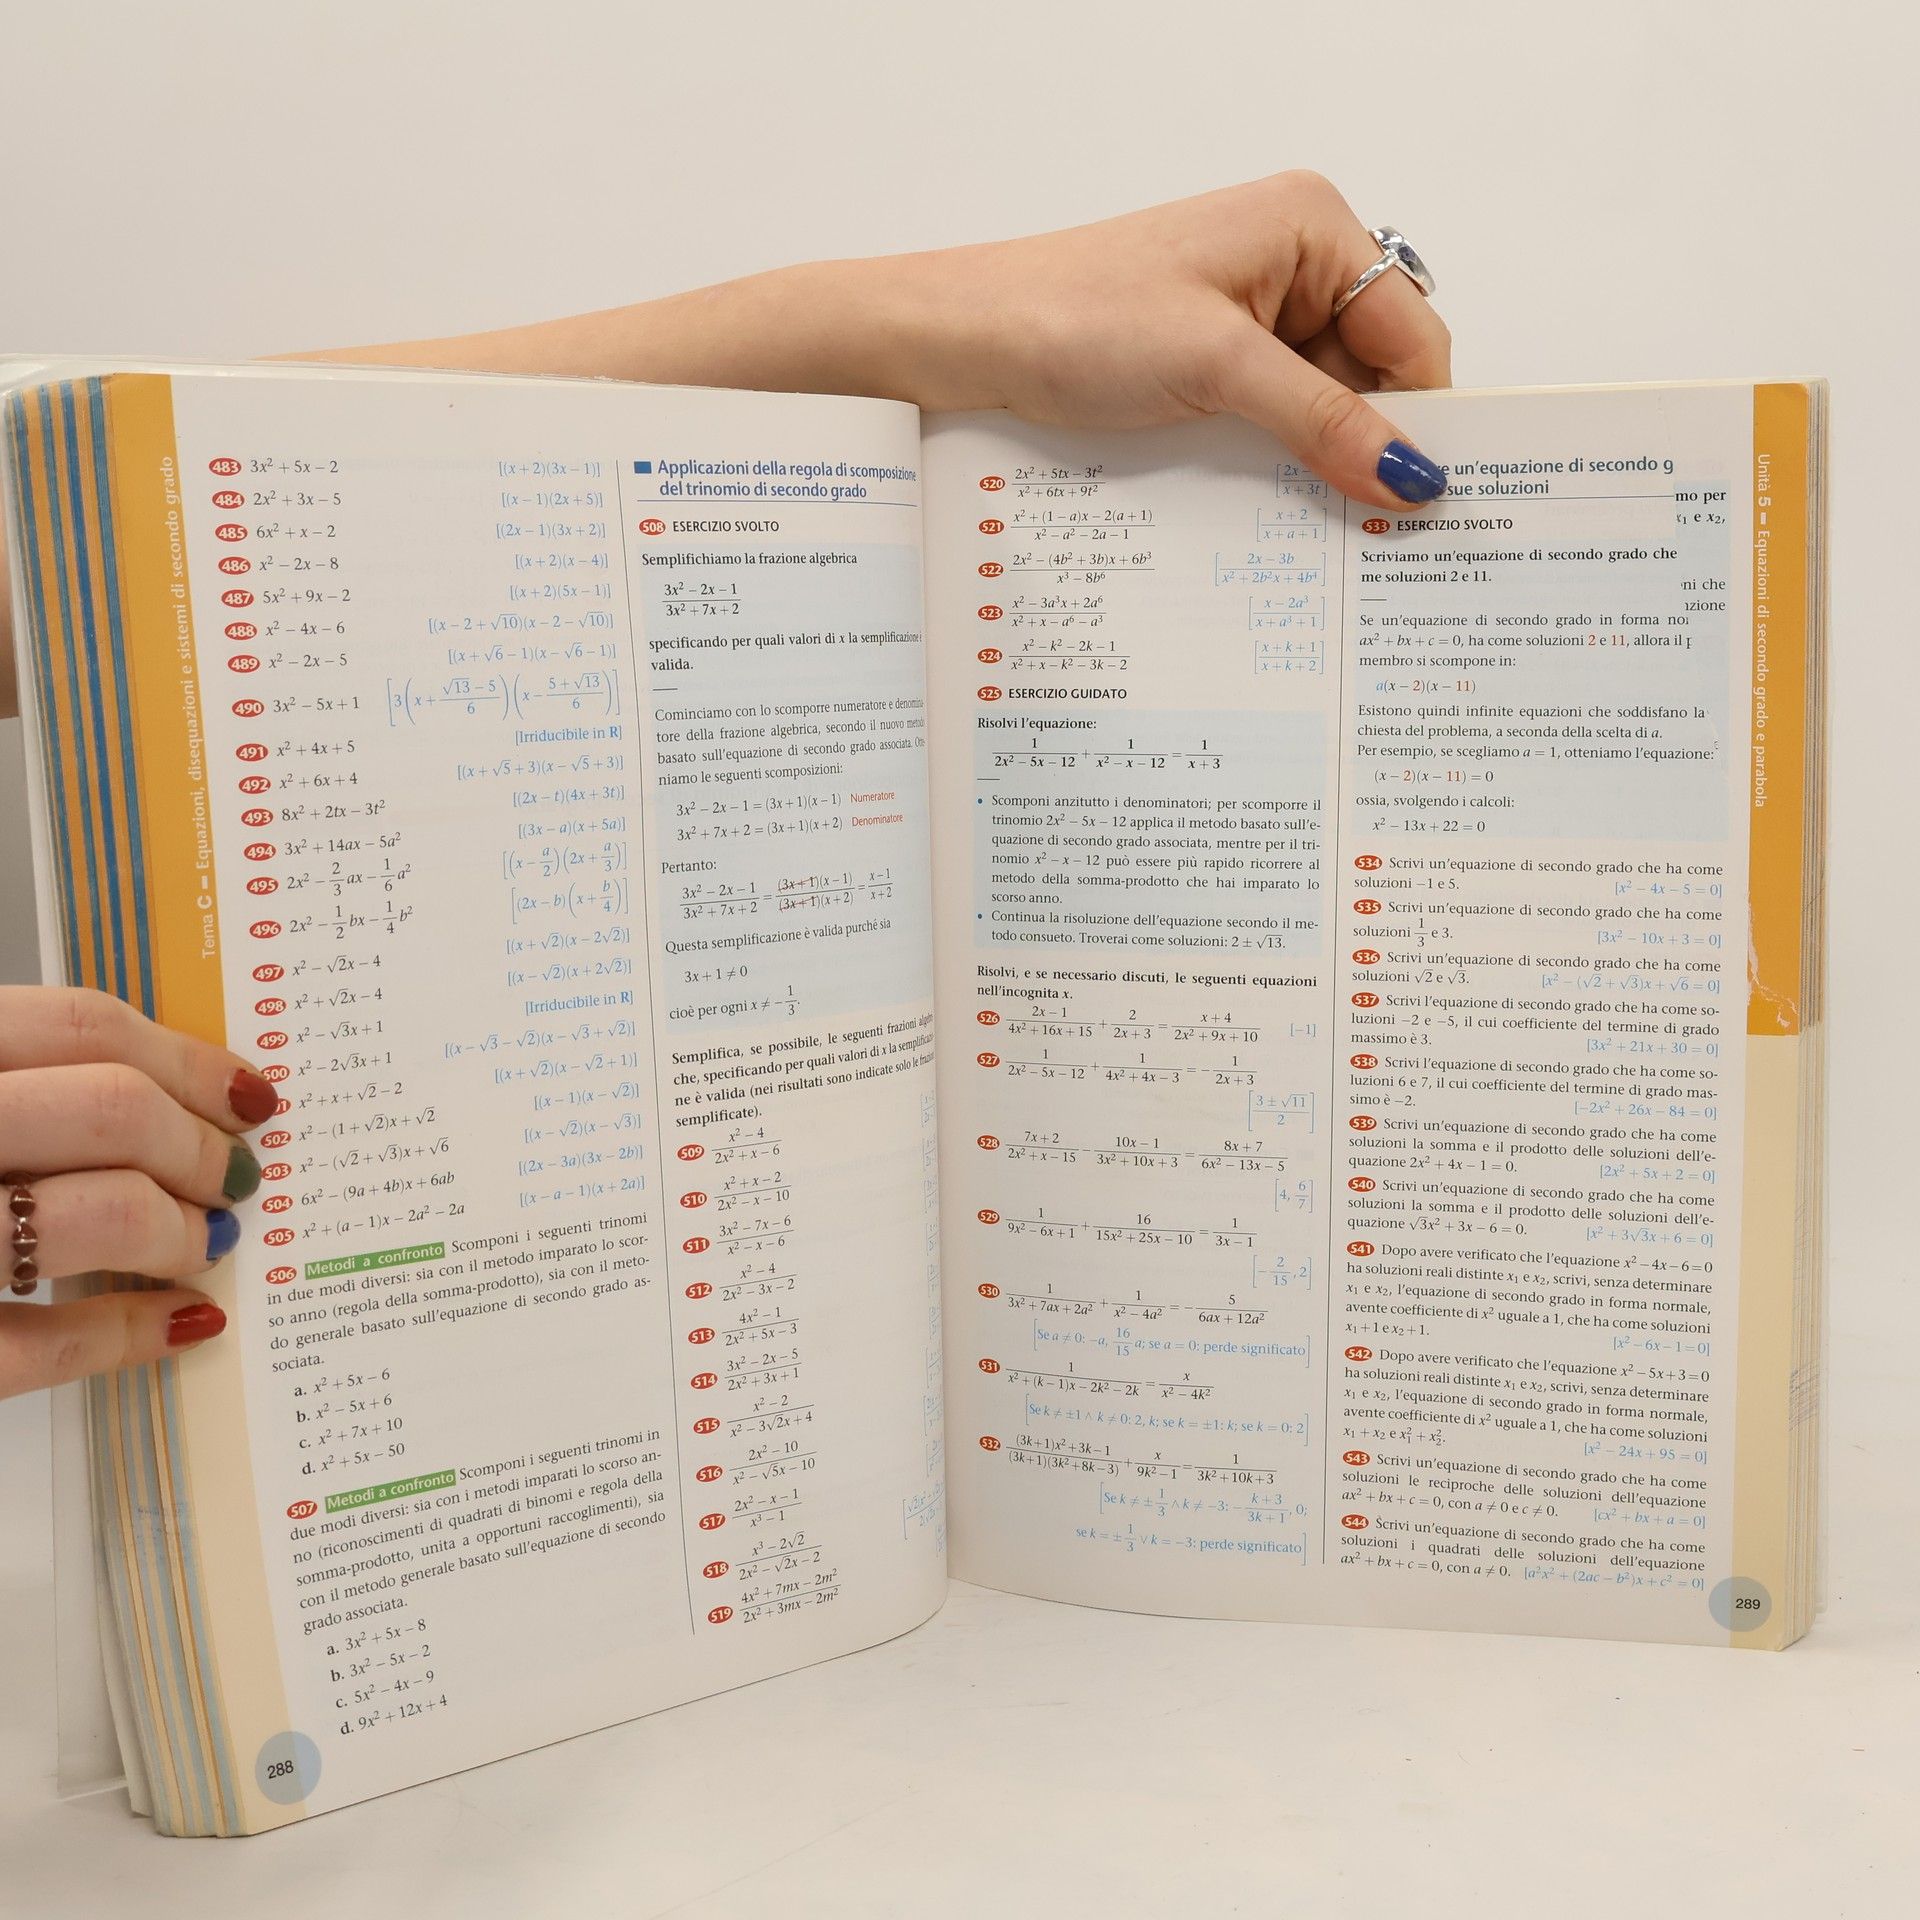 Tema C Equazioni, disequazioni e sistemi di secondo grado
483 3x² + 5x − 2 [(x + 2)(3x − 1)]
484 2x² + 3x − 5 [(x − 1)(2x + 5)]
485 6x² + x − 2 [(2x − 1)(3x + 2)]
486 x² − 2x − 8 [(x + 2)(x − 4)]
487 5x² + 9x − 2 [(x + 2)(5x − 1)]
488 x² − 4x − 6 [(x − 2 + √10)(x − 2 − √10)]
489 x² − 2x − 5 [(x + √6 − 1)(x − √6 − 1)]
490 3x² − 5x + 1 [3(x + (√13 − 5)/6)(x − (5 + √13)/6)]
491 x² + 4x + 5 [Irriducibile in R]
492 x² + 6x + 4 [(x + √5 + 3)(x − √5 + 3)]
493 8x² + 2tx − 3t² [(2x − t)(4x + 3t)]
494 3x² + 14ax − 5a² [(3x − a)(x + 5a)]
495 2x² − 2/3 ax − 1/6 a² [(x − a/2)(2x + a/3)]
496 2x² − 1/2 bx − 1/4 b² [(2x − b)(x + b/4)]
497 x² − √2x − 4 [(x + √2)(x − 2√2)]
498 x² + √2x − 4 [(x − √2)(x + 2√2)]
499 x² − √3x + 1 [Irriducibile in R]
500 x² − 2√3x + 1 [(x − √3 − √2)(x − √3 + √2)]
x² + x + √2 − 2 [(x + √2)(x − √2 + 1)]
502 x² − (1 + √2)x + √2 [(x − 1)(x − √2)]
503 x² − (√2 + √3)x + √6 [(x − √2)(x − √3)]
504 6x² − (9a + 4b)x + 6ab [(2x − 3a)(3x − 2b)]
505 x² + (a − 1)x − 2a² − 2a [(x − a − 1)(x + 2a)]
506 Metodi a confronto Scomponi i seguenti trinomi
in due modi diversi: sia con il metodo imparato lo scor-
so anno (regola della somma-prodotto), sia con il meto-
do generale basato sull'equazione di secondo grado as-
sociata.
a. x² + 5x − 6
b. x² − 5x + 6
c. x² + 7x + 10
d. x² + 5x − 50
507 Metodi a confronto Scomponi i seguenti trinomi in
due modi diversi: sia con i metodi imparati lo scorso an-
no (riconoscimenti di quadrati di binomi e regola della
somma-prodotto, unita a opportuni raccoglimenti), sia
con il metodo generale basato sull'equazione di secondo
grado associata.
a. 3x² + 5x − 8
b. 3x² − 5x − 2
c. 5x² − 4x − 9
d. 9x² + 12x + 4
288
Applicazioni della regola di scomposizione
del trinomio di secondo grado
508 ESERCIZIO SVOLTO
Semplifichiamo la frazione algebrica
(3x² − 2x − 1)/(3x² + 7x + 2)
specificando per quali valori di x la semplificazione è
valida.
Cominciamo con lo scomporre numeratore e denomina-
tore della frazione algebrica, secondo il nuovo metodo
basato sull'equazione di secondo grado associata. Otte-
niamo le seguenti scomposizioni:
3x² − 2x − 1 = (3x + 1)(x − 1) Numeratore
3x² + 7x + 2 = (3x + 1)(x + 2) Denominatore
Pertanto:
(3x² − 2x − 1)/(3x² + 7x + 2) = ((3x + 1)(x − 1))/((3x + 1)(x + 2)) = (x − 1)/(x + 2)
Questa semplificazione è valida purché sia
3x + 1 ≠ 0
cioè per ogni x ≠ −1/3.
Semplifica, se possibile, le seguenti frazioni
che, specificando per quali valori di x la
ne è valida (nei risultati sono indicate solo le
semplificate).
509 (x² − 4)/(2x² + x − 6)
510 (x² + x − 2)/(2x² − x − 10)
511 (3x² − 7x − 6)/(x² − x − 6)
512 (x² − 4)/(2x² − 3x − 2)
513 (4x² − 1)/(2x² + 5x − 3)
514 (3x² − 2x − 5)/(2x² + 3x + 1)
515 (x² − 2)/(x² − 3√2x + 4)
516 (2x² − 10)/(x² − √5x − 10)
517 (2x² − x − 1)/(x³ − 1)
518 (x³ − 2√2)/(2x² − √2x − 2)
519 (4x² + 7mx − 2m²)/(2x² + 3mx − 2m²)
520 (2x² + 5tx − 3t²)/(x² + 6tx + 9t²) [2x −/x + 3t]
521 (x² + (1 − a)x − 2(a + 1))/(x² − a² − 2a − 1) [(x + 2)/(x + a + 1)]
522 (2x² − (4b² + 3b)x + 6b³)/(x³ − 8b⁶) [(2x − 3b)/(x² + 2b²x + 4b⁴)]
523 (x² − 3a³x + 2a⁶)/(x² + x − a⁶ − a³) [(x − 2a³)/(x + a³ + 1)]
524 (x² − k² − 2k − 1)/(x² + x − k² − 3k − 2) [(x + k + 1)/(x + k + 2)]
525 ESERCIZIO GUIDATO
Risolvi l'equazione:
1/(2x² − 5x − 12) + 1/(x² − x − 12) = 1/(x + 3)
• Scomponi anzitutto i denominatori; per scomporre il
trinomio 2x² − 5x − 12 applica il metodo basato sull'e-
quazione di secondo grado associata, mentre per il tri-
nomio x² − x − 12 può essere più rapido ricorrere al
metodo della somma-prodotto che hai imparato lo
scorso anno.
• Continua la risoluzione dell'equazione secondo il me-
todo consueto. Troverai come soluzioni: 2 ± √13.
Risolvi, e se necessario discuti, le seguenti equazioni
nell'incognita x.
526 (2x − 1)/(4x² + 16x + 15) + 2/(2x + 3) = (x + 4)/(2x² + 9x + 10) [−1]
527 1/(2x² − 5x − 12) + 1/(4x² + 4x − 3) = −1/(2x + 3)
[(3 ± √11)/2]
528 (7x + 2)/(2x² + x − 15) − (10x − 1)/(3x² + 10x + 3) = (8x + 7)/(6x² − 13x − 5)
[4, 6/7]
529 1/(9x² − 6x + 1) + 16/(15x² + 25x − 10) = 1/(3x − 1)
[−2/15, 2]
530 1/(3x² + 7ax + 2a²) + 1/(x² − 4a²) = −5/(6ax + 12a²)
[Se a ≠ 0: −a, 16/15 a; se a = 0: perde significato]
531 1/(x² + (k − 1)x − 2k² − 2k) = x/(x² − 4k²)
[Se k ≠ ±1 ∧ k ≠ 0: 2, k; se k = ±1: k; se k = 0: 2]
532 ((3k + 1)x² + 3k − 1)/((3k + 1)(3k² + 8k − 3)) + x/(9k² − 1) = 1/(3k² + 10k + 3)
[Se k ≠ ±1/3 ∧ k ≠ −3: −(k + 3)/(3k + 1), 0;
se k = ±1/3 ∨ k = −3: perde significato]
un'equazione di secondo g
sue soluzioni
mo per
x₁ e x₂,
533 ESERCIZIO SVOLTO
Scriviamo un'equazione di secondo grado che
me soluzioni 2 e 11.
ni che
Se un'equazione di secondo grado in forma
ax² + bx + c = 0, ha come soluzioni 2 e 11, allora il
membro si scompone in:
a(x − 2)(x − 11)
Esistono quindi infinite equazioni che soddisfano la
chiesta del problema, a seconda della scelta di a.
Per esempio, se scegliamo a = 1, otteniamo l'equazione:
(x − 2)(x − 11) = 0
ossia, svolgendo i calcoli:
x² − 13x + 22 = 0
534 Scrivi un'equazione di secondo grado che ha come
soluzioni −1 e 5. [x² − 4x − 5 = 0]
535 Scrivi un'equazione di secondo grado che ha come
soluzioni 1/3 e 3. [3x² − 10x + 3 = 0]
536 Scrivi un'equazione di secondo grado che ha come
soluzioni √2 e √3. [x² − (√2 + √3)x + √6 = 0]
537 Scrivi l'equazione di secondo grado che ha come so-
luzioni −2 e −5, il cui coefficiente del termine di grado
massimo è 3. [3x² + 21x + 30 = 0]
538 Scrivi l'equazione di secondo grado che ha come so-
luzioni 6 e 7, il cui coefficiente del termine di grado mas-
simo è −2. [−2x² + 26x − 84 = 0]
539 Scrivi un'equazione di secondo grado che ha come
soluzioni la somma e il prodotto delle soluzioni dell'e-
quazione 2x² + 4x − 1 = 0. [2x² + 5x + 2 = 0]
540 Scrivi un'equazione di secondo grado che ha come
soluzioni la somma e il prodotto delle soluzioni dell'e-
quazione √3x² + 3x − 6 = 0. [x² + 3√3x + 6 = 0]
541 Dopo avere verificato che l'equazione x² − 4x − 6 = 0
ha soluzioni reali distinte x₁ e x₂, scrivi, senza determinare
x₁ e x₂, l'equazione di secondo grado in forma normale,
avente coefficiente di x² uguale a 1, che ha come soluzioni
x₁ + 1 e x₂ + 1. [x² − 6x − 1 = 0]
542 Dopo avere verificato che l'equazione x² − 5x + 3 = 0
ha soluzioni reali distinte x₁ e x₂, scrivi, senza determinare
x₁ e x₂, l'equazione di secondo grado in forma normale,
avente coefficiente di x² uguale a 1, che ha come soluzioni
x₁ + x₂ e x₁² + x₂². [x² − 24x + 95 = 0]
543 Scrivi un'equazione di secondo grado che ha come
soluzioni le reciproche delle soluzioni dell'equazione
ax² + bx + c = 0, con a ≠ 0 e c ≠ 0. [cx² + bx + a = 0]
544 Scrivi un'equazione di secondo grado che ha come
soluzioni i quadrati delle soluzioni dell'equazione
ax² + bx + c = 0, con a ≠ 0. [a²x² + (2ac − b²)x + c² = 0]
Unità 5 Equazioni di secondo grado e parabola
289